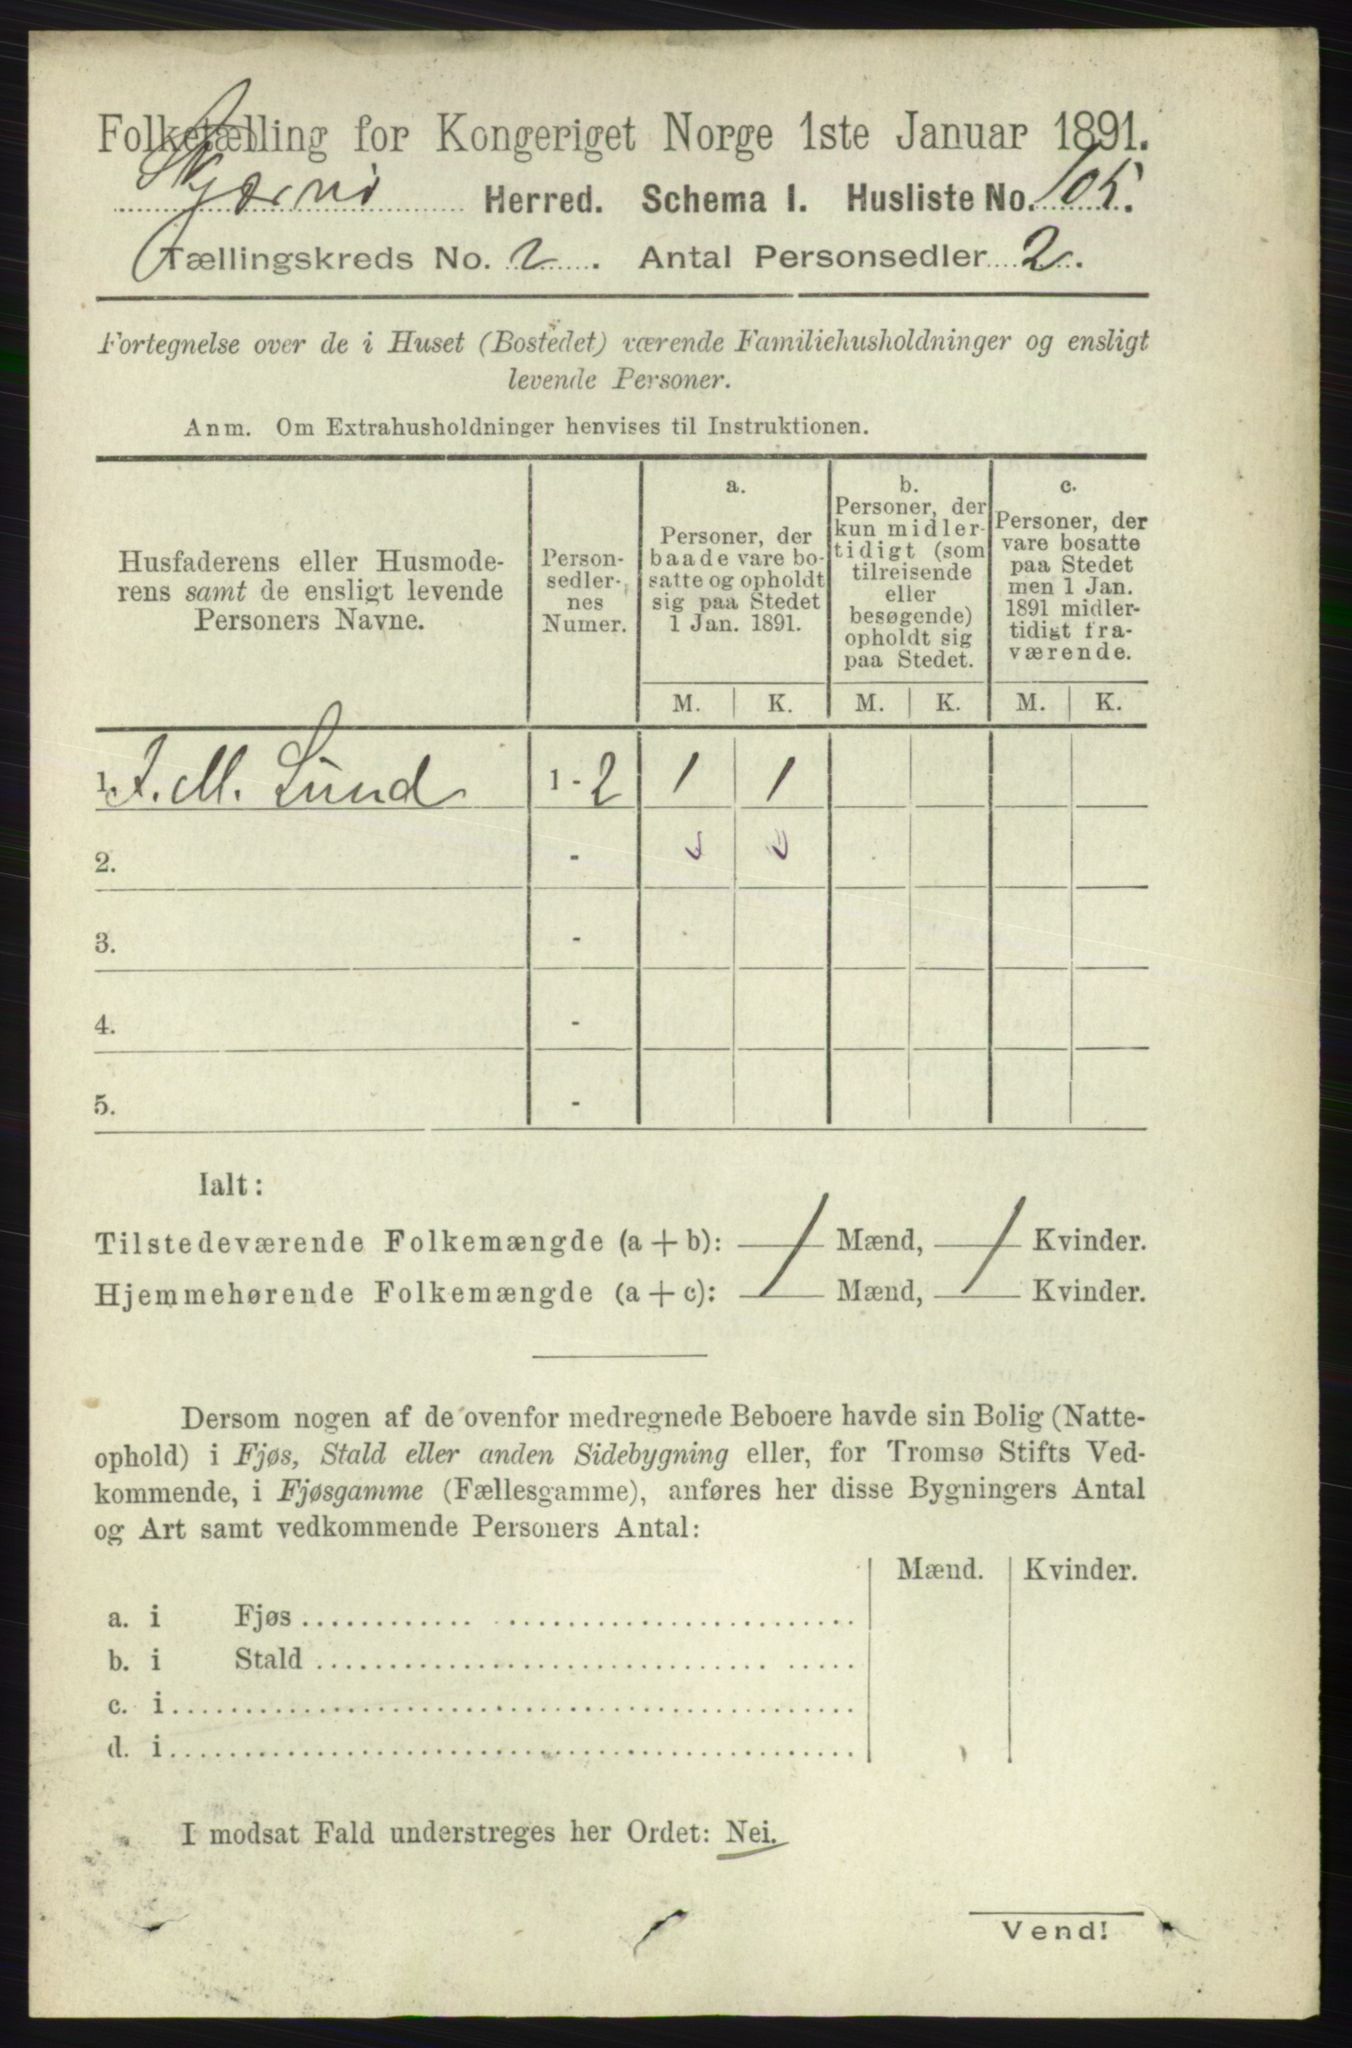 Folketælling for Kongeriget Norge 1ste Januar 1891.
Skjærnö Herred. Schema I. Husliste No. 105.
Tællingskreds No. 2. Antal Personsedler 2.
Fortegnelse over de i Huset (Bostedet) værende Familiehusholdninger og ensligt
levende Personer.
Anm. Om Extrahusholdninger henvises til Instruktionen.
Husfaderens eller Husmode-
rens samt de ensligt levende
Personers Navne.
Person-
sedler-
nes
Numer.
a.
Personer, der
baade vare bo-
satte og opholdt
sig paa Stedet
1 Jan. 1891.
b.
Personer, der
kun midler-
tidigt (som
tilreisende
eller
besøgende)
opholdt sig
paa Stedet.
c.
Personer, der
vare bosatte
paa Stedet
men 1 Jan.
1891 midler-
tidigt fra-
værende.
M. K. M. K. M. K.
1. J. M. Lund 1 - 2 1 1
2. -
3. -
4. -
5. -
Ialt:
Tilstedeværende Folkemængde (a + b): 1 Mænd, 1 Kvinder.
Hjemmehørende Folkemængde (a + c): 1 Mænd, 1 Kvinder.
Dersom nogen af de ovenfor medregnede Beboere havde sin Bolig (Natte-
ophold) i Fjøs, Stald eller anden Sidebygning eller, for Tromsø Stifts Ved-
kommende, i Fjøsgamme (Fællesgamme), anføres her disse Bygningers Antal
og Art samt vedkommende Personers Antal:
Mænd. Kvinder.
a. i Fjøs
b. i Stald
c. i
d. i
I modsat Fald understreges her Ordet: Nei.
Vend!